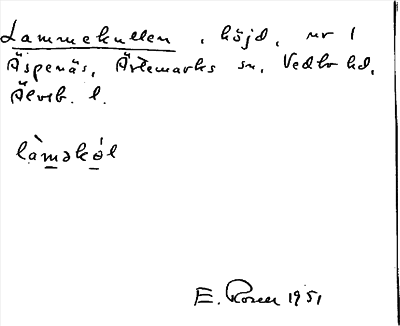 Lammekullen, höjd, nr 1
Äspenäs, Ärtemarks sn, Vedbo hd,
Älvsb. l.
là̱məkə̱́l
E. Rosen 1951